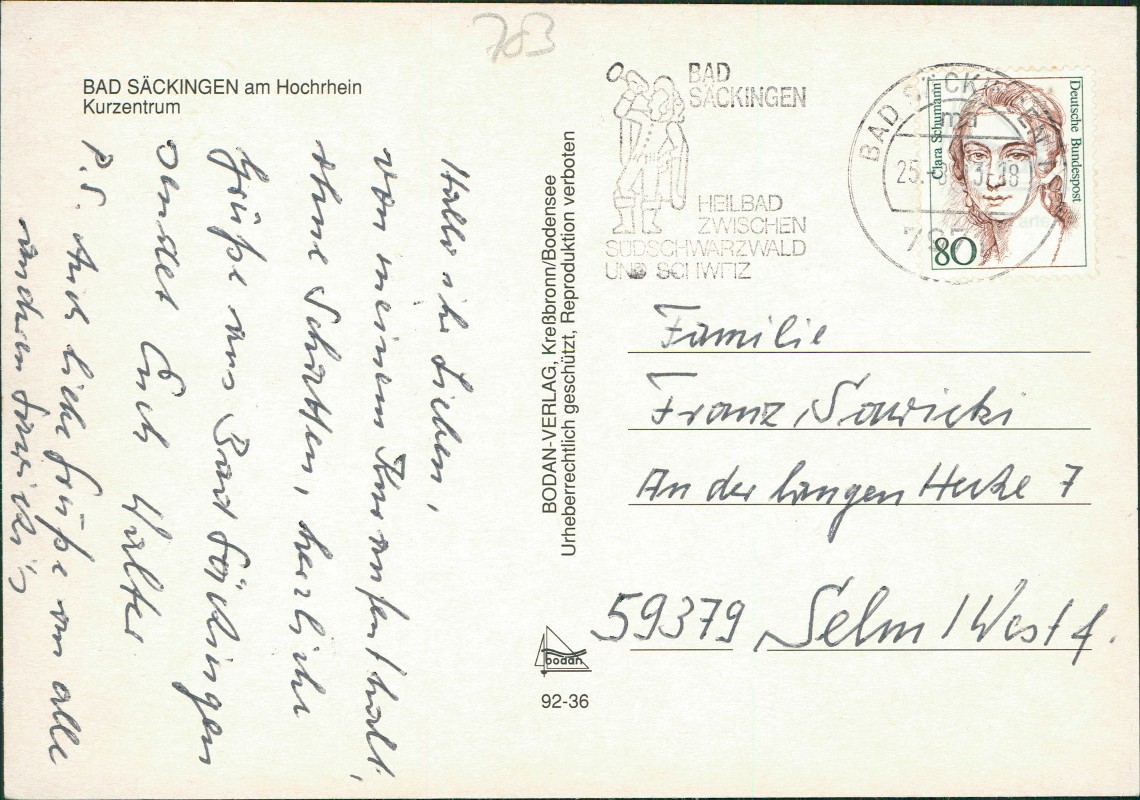 783
BAD SÄCKINGEN am Hochrhein
Kurzentrum
Hallo ihr Lieben,
von meinem Kuraufenthalt,
ohne Schatten, herzliche
Grüße aus Bad Säckingen
sendet Euch Walter
P.S. Auch liebe Grüße an alle
anderen Sawickis
BODAN-VERLAG, Kreßbronn/Bodensee
Urheberrechtlich geschützt, Reproduktion verboten
bodan
92-36
BAD
SÄCKINGEN
HEILBAD
ZWISCHEN
SÜDSCHWARZWALD
UND SCHWEIZ
BAD SÄCKINGEN 1
ma
25.
-18
Clara Schumann
Deutsche Bundespost
80
Familie
Franz Sawicki
An der langen Hecke 7
59379 Selm / Westf.